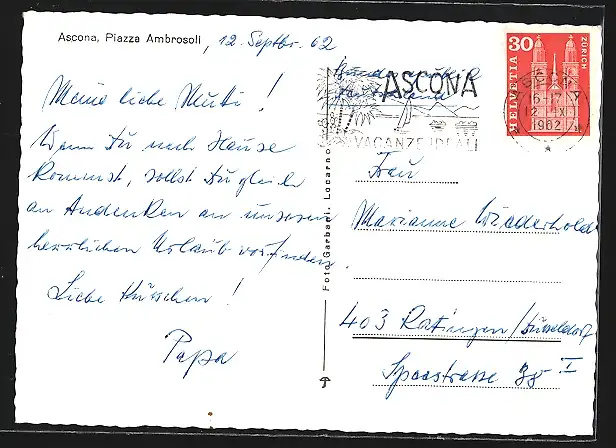 Ascona, Piazza Ambrosoli, 12. Septbr. 62
Meine liebe Mutti!
Wenn Du nach Hause
kommst, sollst Du gleich
an Andenken an unseren
herrlichen Urlaub vorfinden.
Liebe Küsschen!
Papa
Foto Garbani, Locarno
ASCONA
VACANZE IDEALI
30
HELVETIA
ZÜRICH
ASCONA
16-17
12. IX.
1962
Frau
Marianne Wiederhold
403 Ratingen/Düsseldorf
Speestrasse 38 I